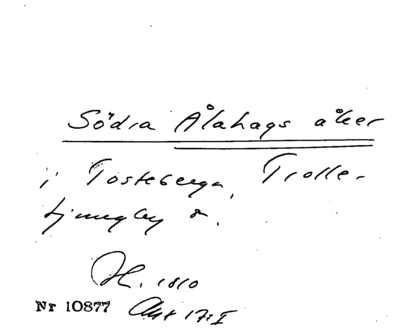 Södra Ålahags åker
i Tosteberga, Trolle-
ljungby s.
H. 1810
Nr 10877 Akt 17:I